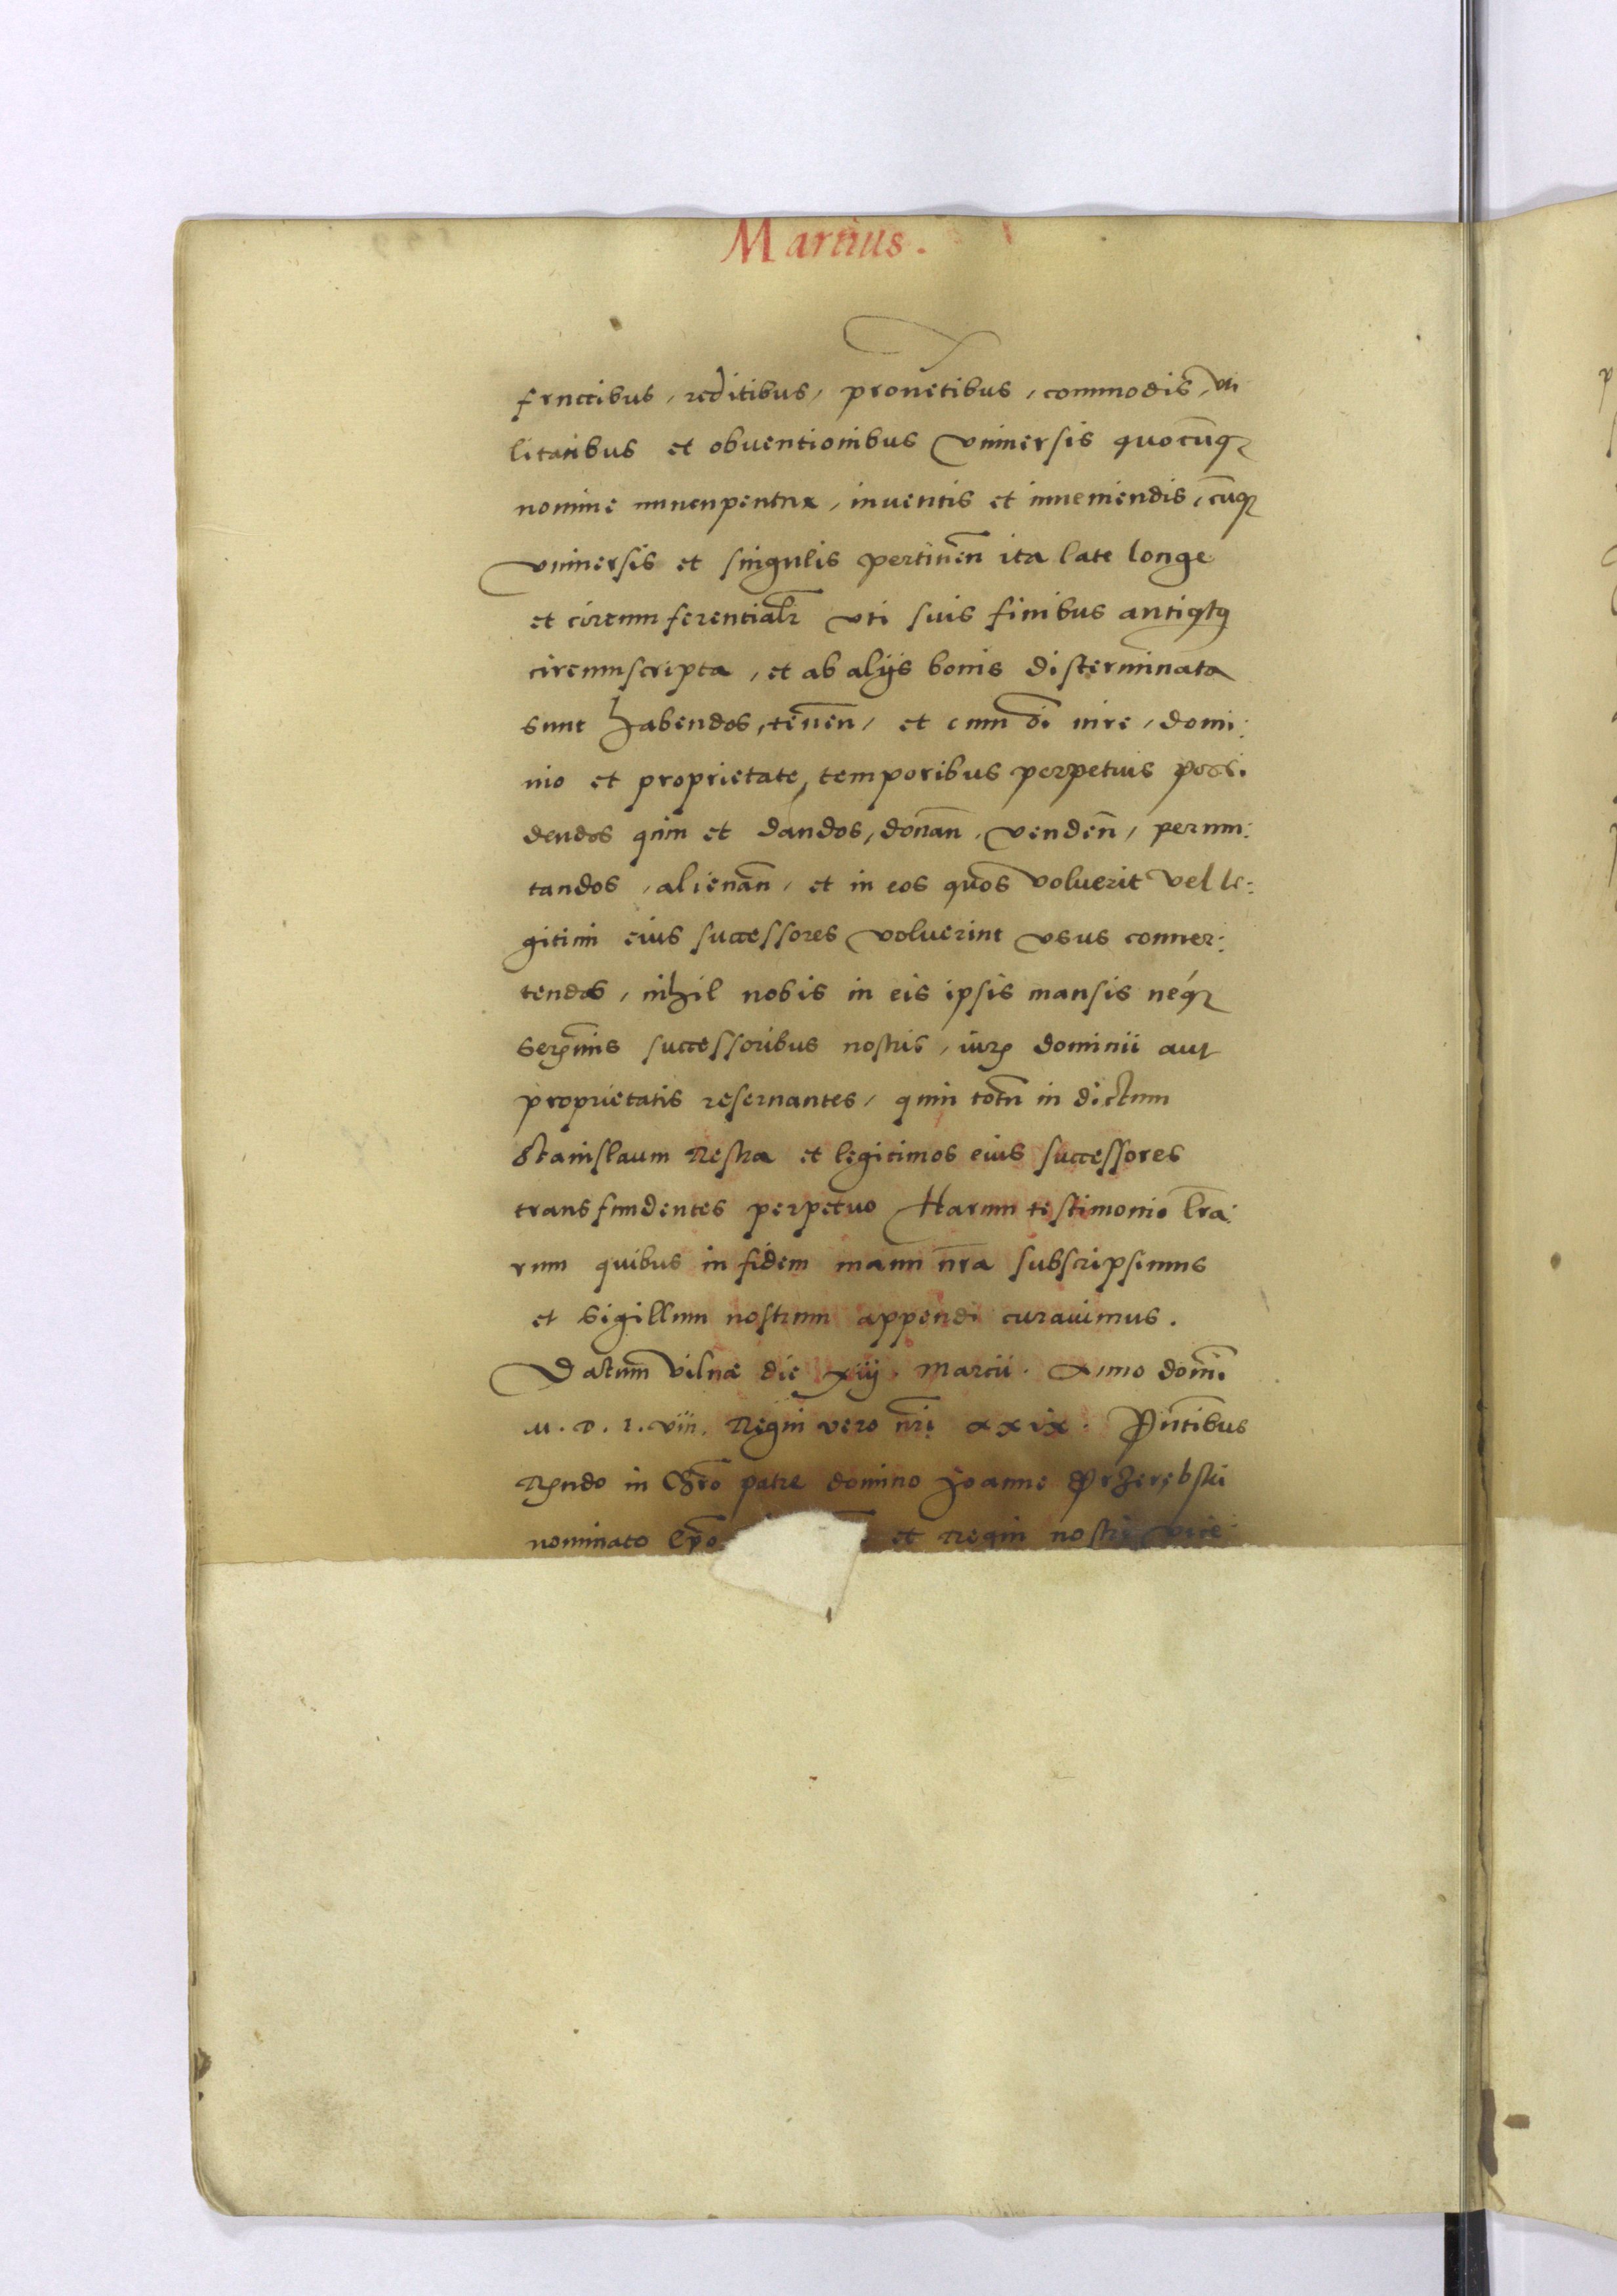 Martius.
fructibus, reditibus, prouētibus, commodis, uti
litatibus et obventionibus vniuersis quocūq3
nomine nuncupentur, inventis et inueniendis, cūq3
vniuersis et singulis pertineñ ita late longe
et circumferentialr̄ vti suis finibus antiqtg
circumscripta, et ab alijs bonis disterminata
sunt habendos, teneñ, et cum oī iure, domi:
nio et proprietate, temporibus perpetuis possi.
dendos quin et dandos, donañ, vendeñ, permu:
tandos, alienañ, et in eos quos voluerit vel le:
gitimi eius successores voluerint vsus conuer:
tendos, nihil nobis in eis ipsis mansis neq3
serm̄is successoribus nostris, iur̄ dominii aut
proprietatis reseruantes, quin totū in dictum
Stanislaum Restka et legitimos eius successores
transfundentes perpetuo Harum testimonio lr̄a:
rum quibus in fidem manu nr̄a subscripsimus
et sigillum nostrum appendi curavimus.
Datum vilnæ die xiij. Marcii. Anno domī.
M.D.L.viii. Regni vero nr̄i xxix. Pn̄tibus
Rn̄do in Chr̄o patre domino Joanne Przerębski
nominato Ep̄o et Regni nostri vice